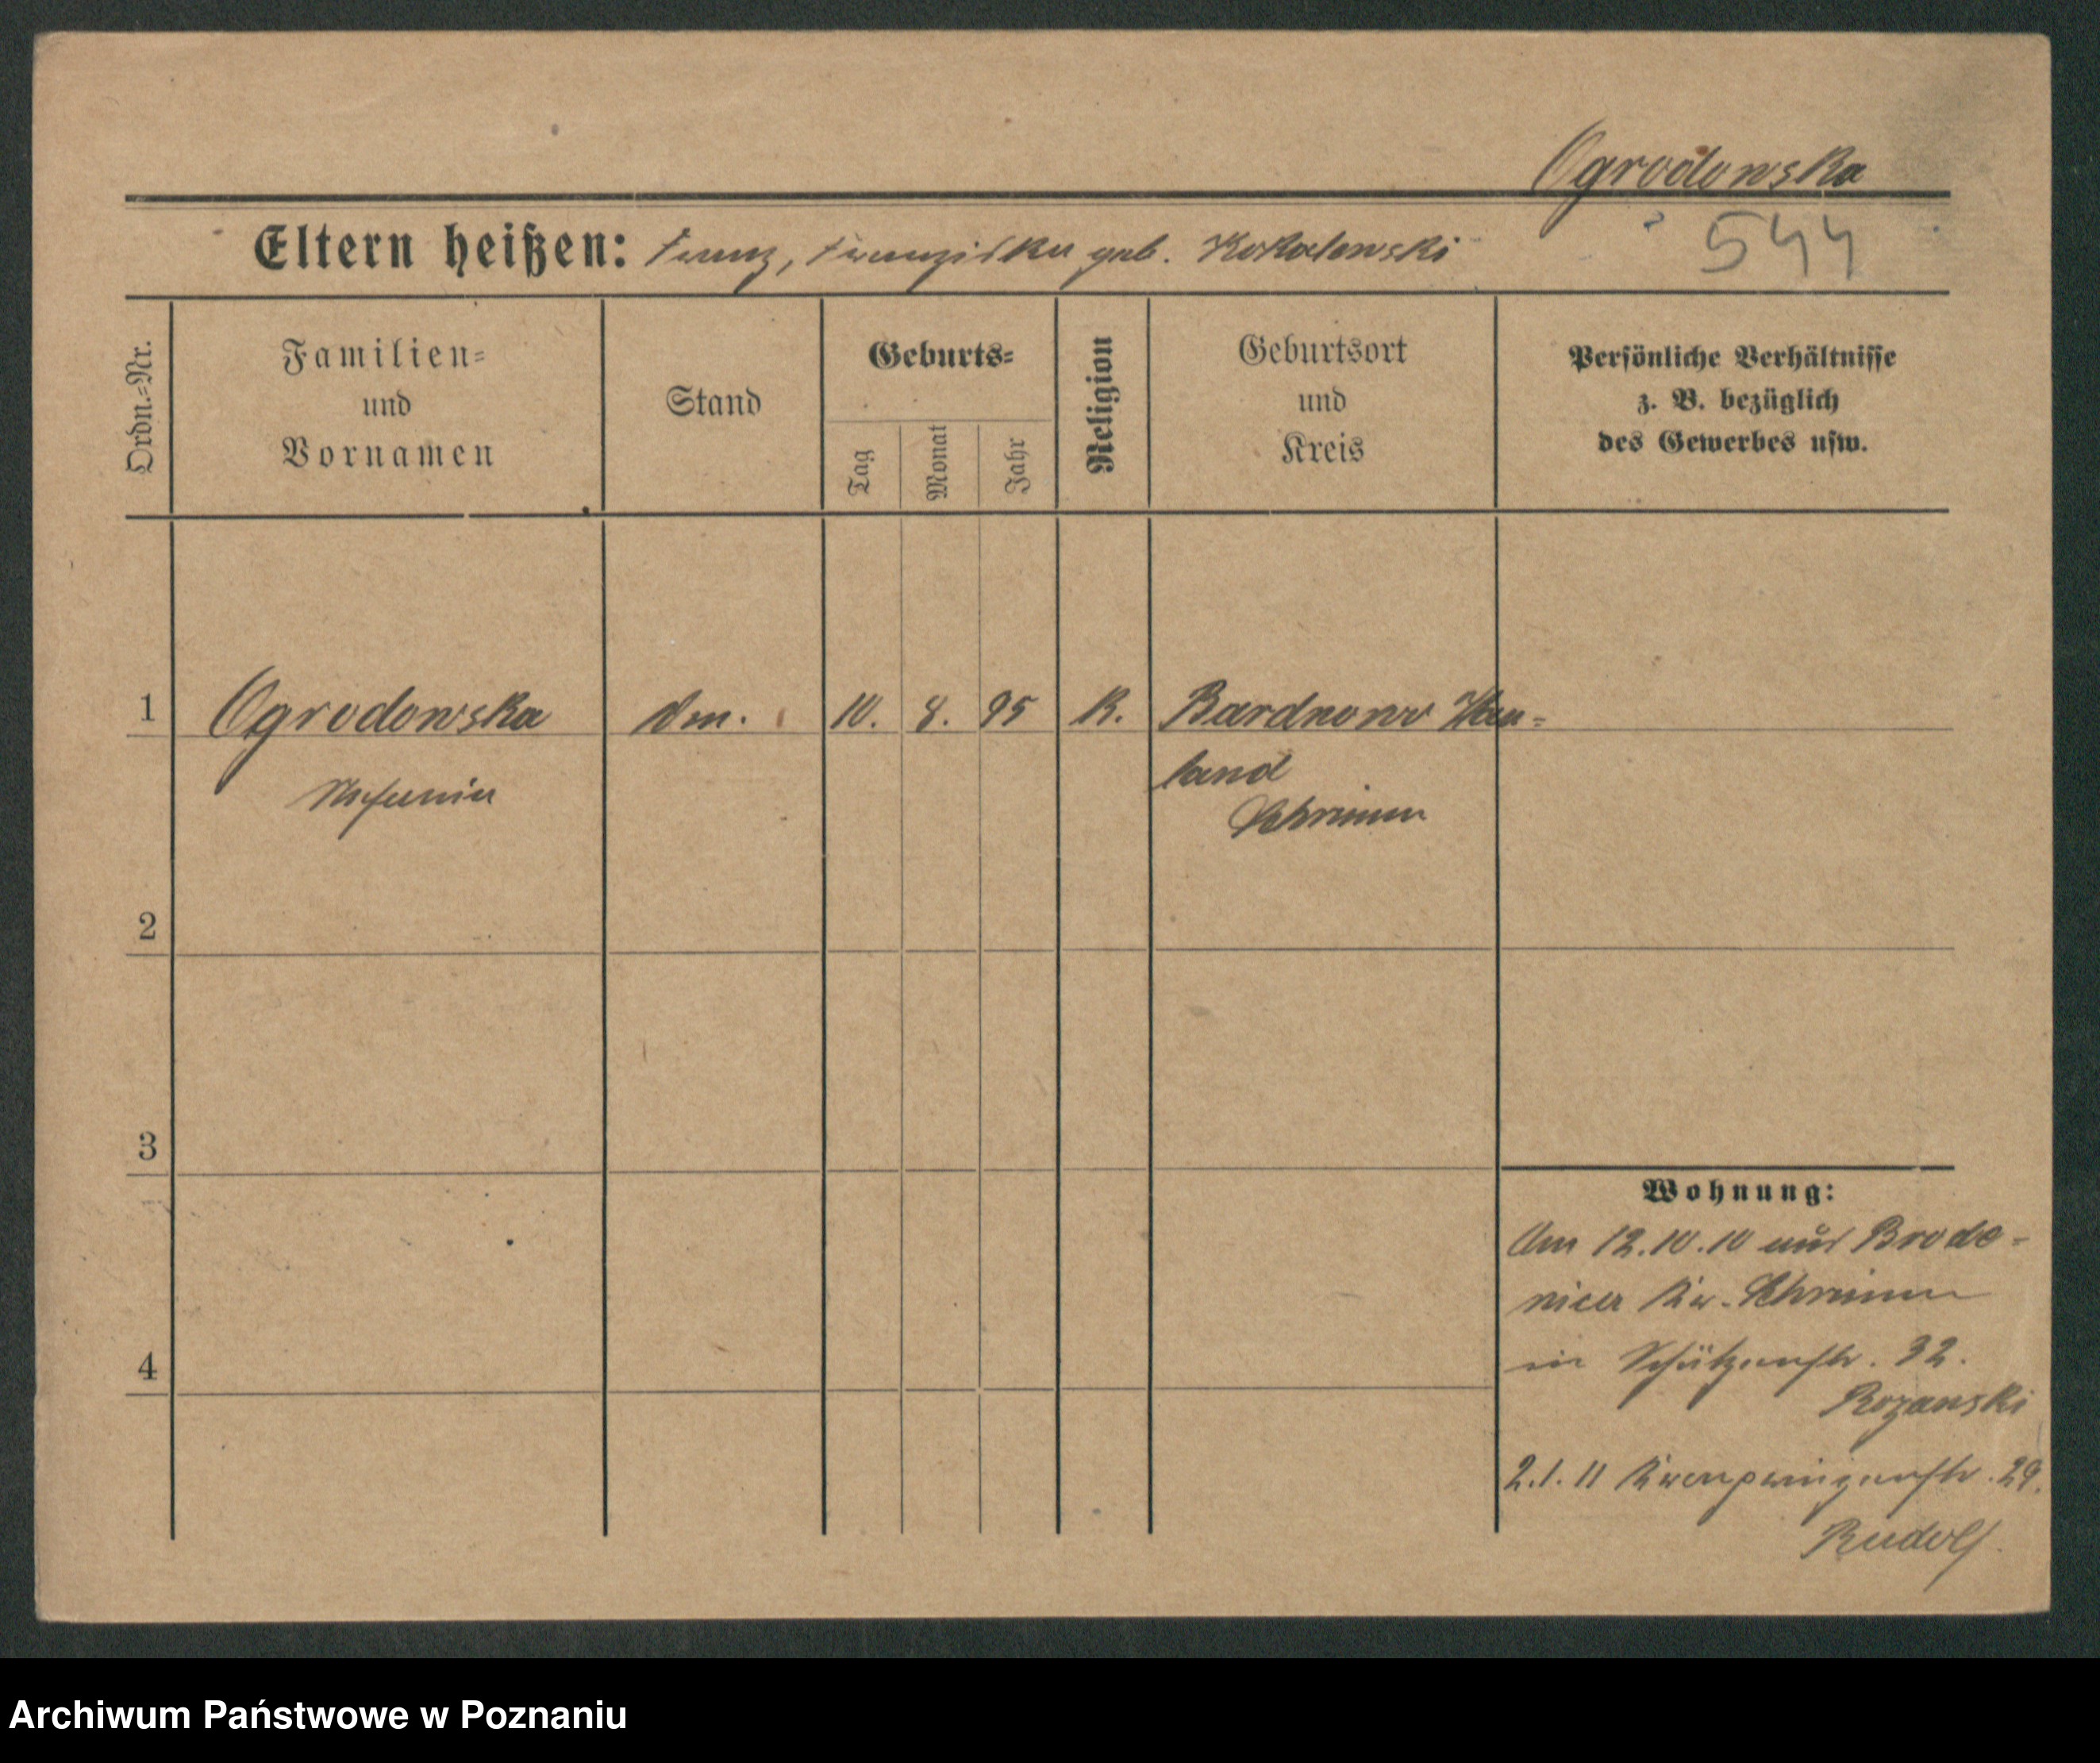 Ogrodowska
544
Eltern heißen: Franz, Franziska geb. Kokalowski
Ordn.-Nr.
Familien- und Vornamen
Stand
Geburts-
Tag
Monat
Jahr
Religion
Geburtsort und Kreis
Persönliche Verhältnisse
z. B. bezüglich
des Gewerbes usw.
1 Ogrodowska 10. 8. 95 K. Bardnowo Hau-
land
Stefania
Schrimm
2
3
4
Wohnung:
Am 12.10.10 aus Brode-
nicer Kr. Schrimm
in Schützenstr. 32.
Rozanski
2.1.11 Kronprinzenstr. 29.
Rudolf.
Archiwum Państwowe w Poznaniu